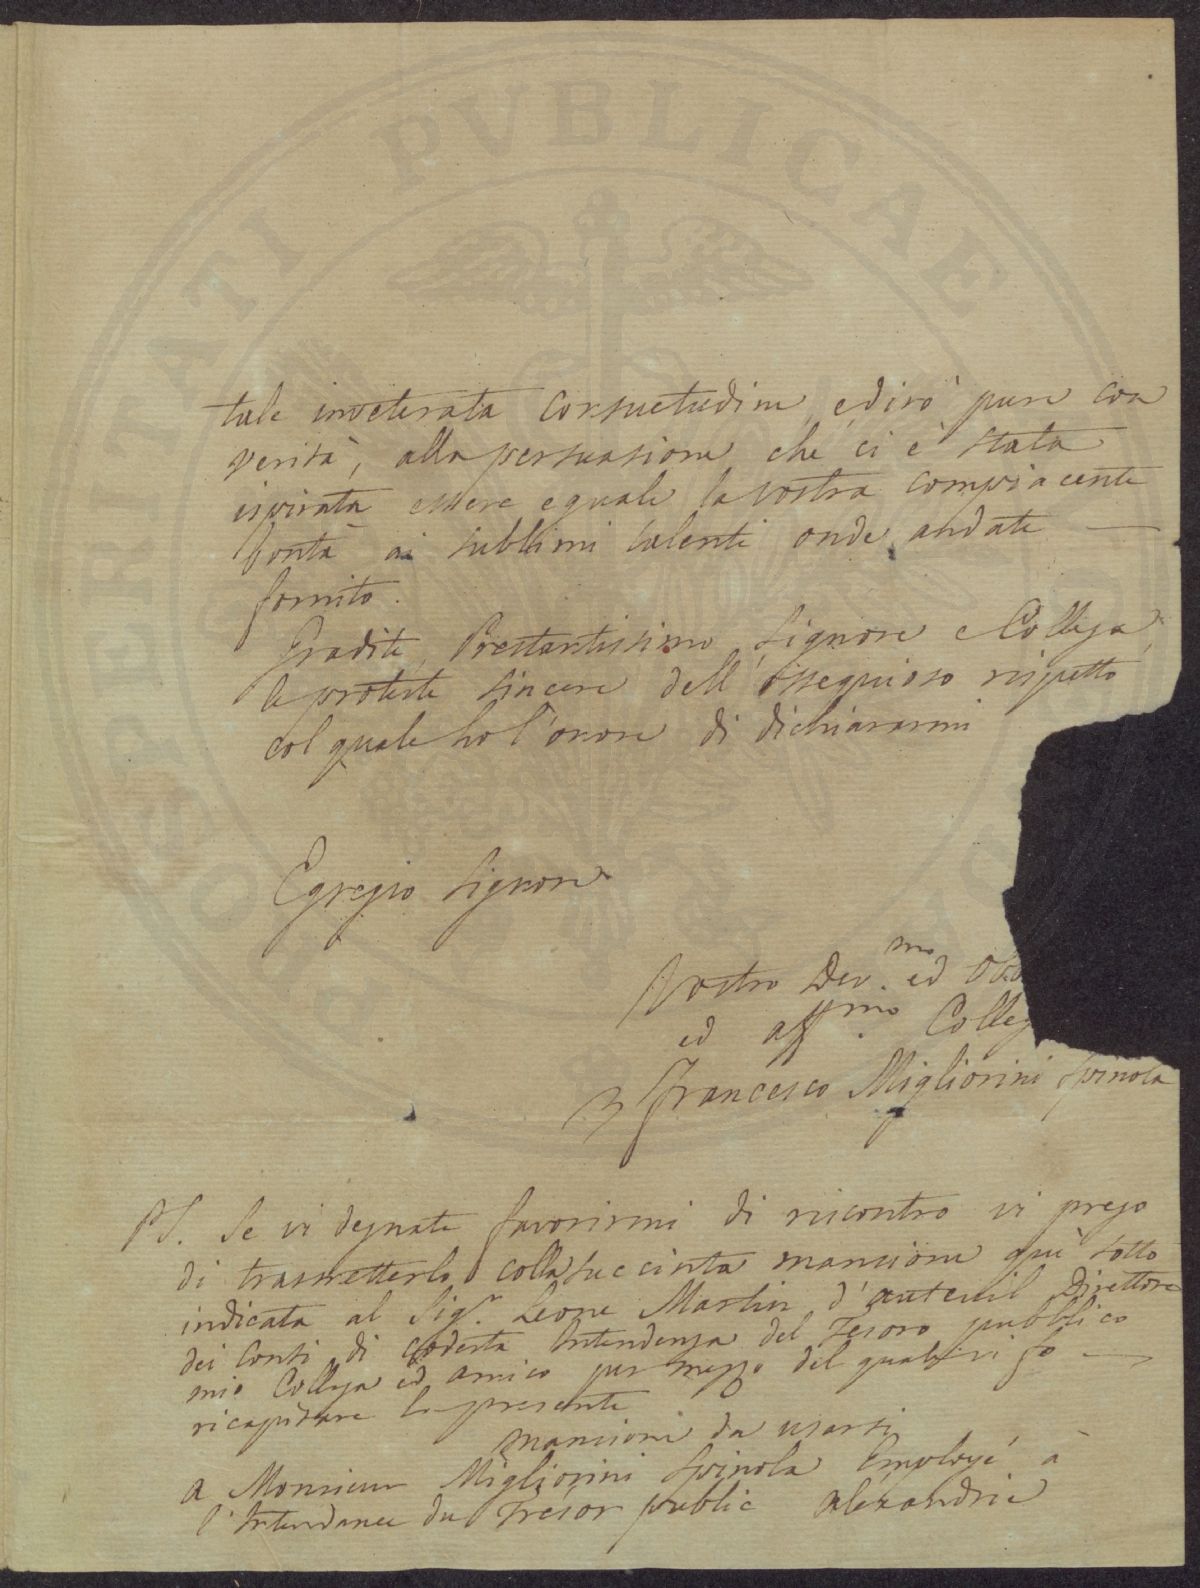 tale inveterata consuetudine, e dirò pure con
verità, alla persuasione che ci è stata
ispirata essere eguale la vostra compiacente
bontà ai sublimi talenti onde andate
fornito.
Gradite, Prestantissimo Signore e Collega,
le proteste sincere dell'ossequioso rispetto
col quale ho l'onore di dichiararmi
Egregio Signore
Vostro Dev.mo ed Obb
ed aff.mo Colleg
Francesco Migliorini Spinola
PS. Se vi degnate favorirmi di riscontro vi prego
di trasmetterlo colla succinta mansione quì sotto
indicata al Sig.r Leone Martin d'auteuil Direttore
dei Conti di codesta Intendenza del Tesoro pubblico
mio Collega ed amico per mezzo del quale vi fo
ricapitare la presente
mansione da usarsi
a Monsieur Migliorini Spinola Employé à
l'Intendance du Trésor public Alexandrie